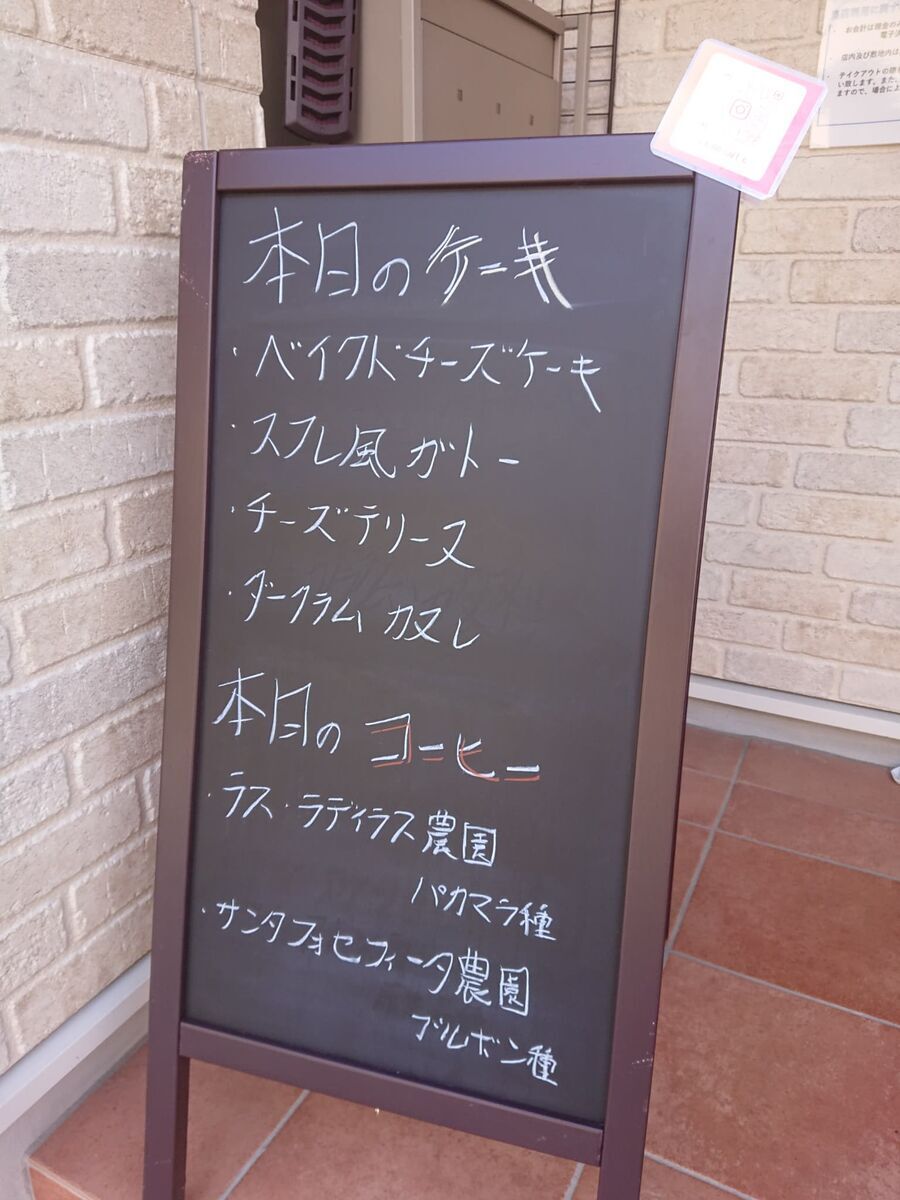 本日のケーキ
・ベイクドチーズケーキ
・スフレ風ガトー
・チーズテリーヌ
・ダークラムカヌレ
本日のコーヒー
・ラス・ラディラス農園
パカマラ種
・サンタフォセフィータ農園
ブルボン種
お会計は現金のみ
店内及び敷地内は
テイクアウトの際
ますので、場合によ